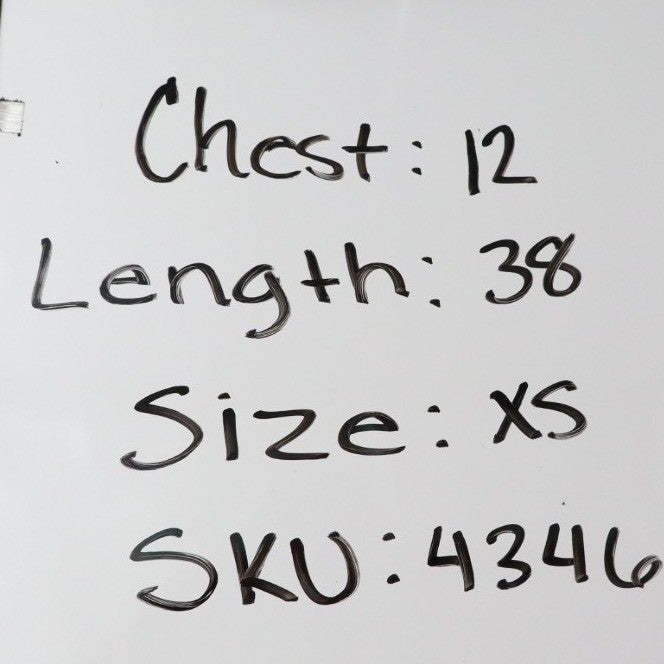 Chest: 12
Length: 38
Size: XS
SKU: 4346